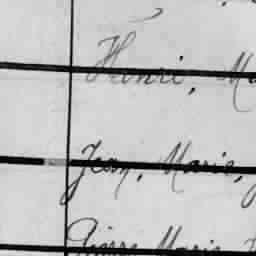 Henri, Ma
Jean, Marie, J
Pierre Marie